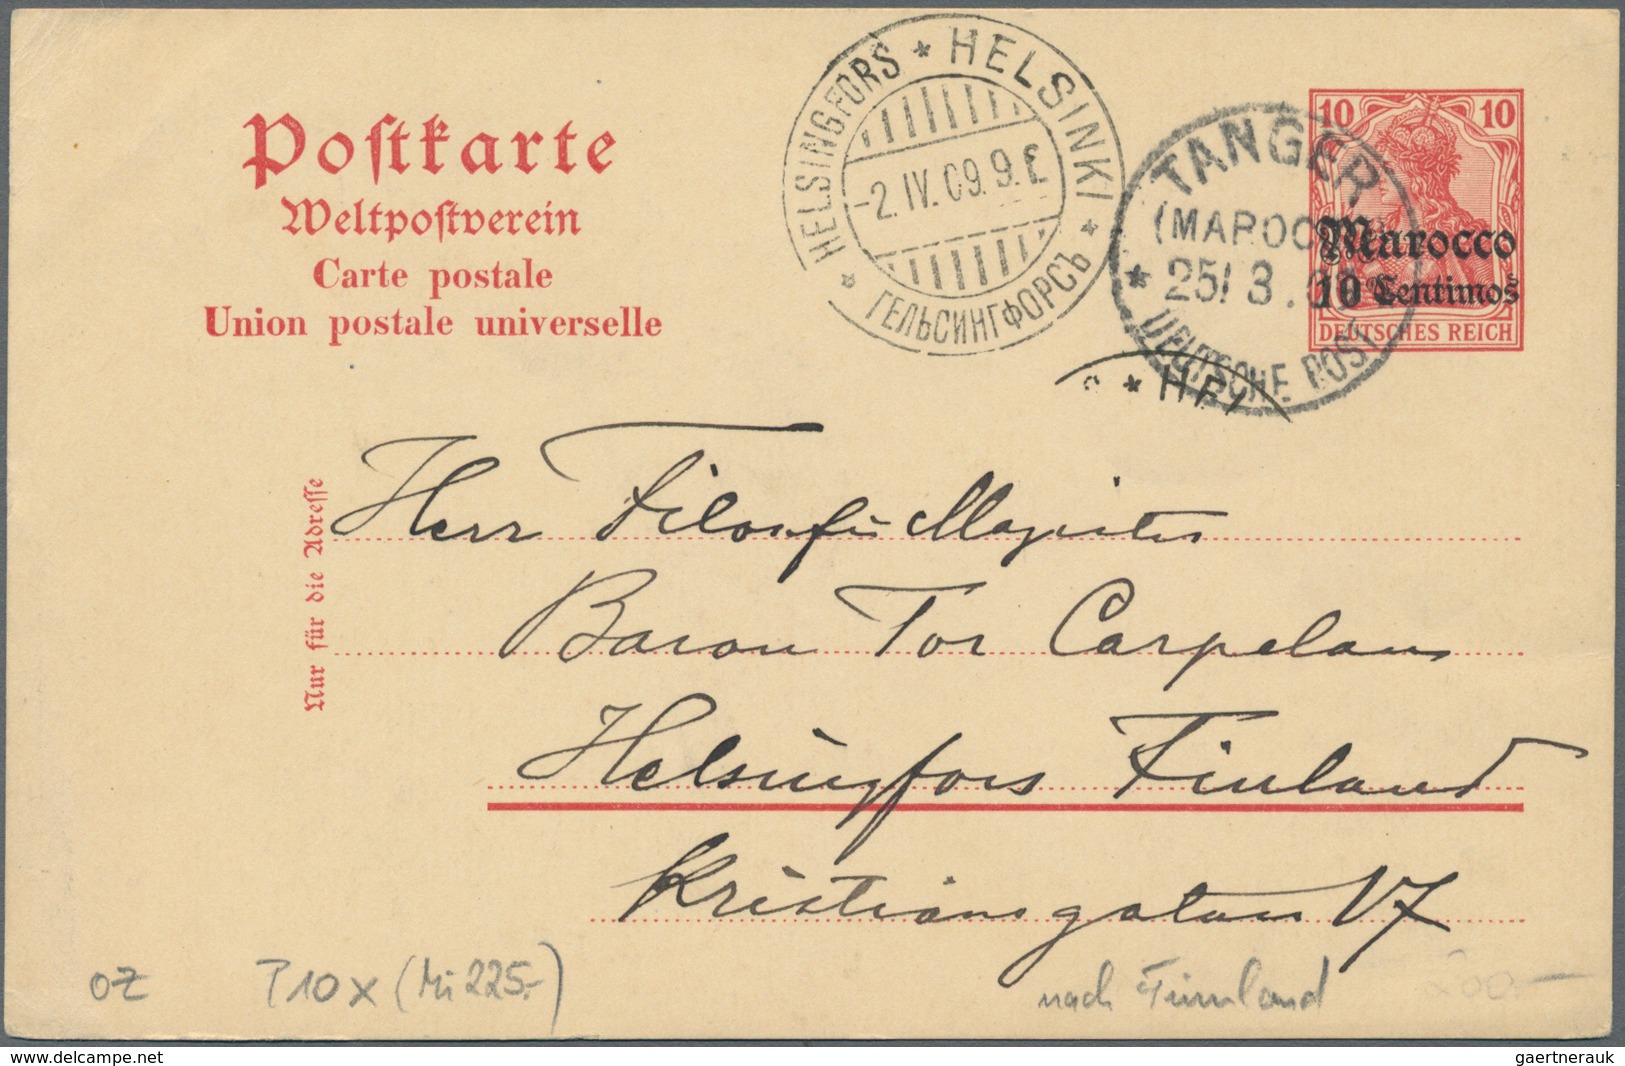 Postkarte
Weltpostverein
Carte postale
Union postale universelle
HELSINGFORS * HELSINKI * ГЕЛЬСИНГФОРСЪ *
-2.IV.09.9.E
10 10
Marocco
10 Centimos
DEUTSCHES REICH
TANGER
(MAROCCO)
25/3.
* DEUTSCHE POST
* HEL
Nur für die Adresse
Herr Magister
Baron Tor Carpelan
Helsingfors Finland
Kristiansgatan 17
oZ P10x (Mi 225.-) nach Finnland 200.-
www.delcampe.net gaertnerauk